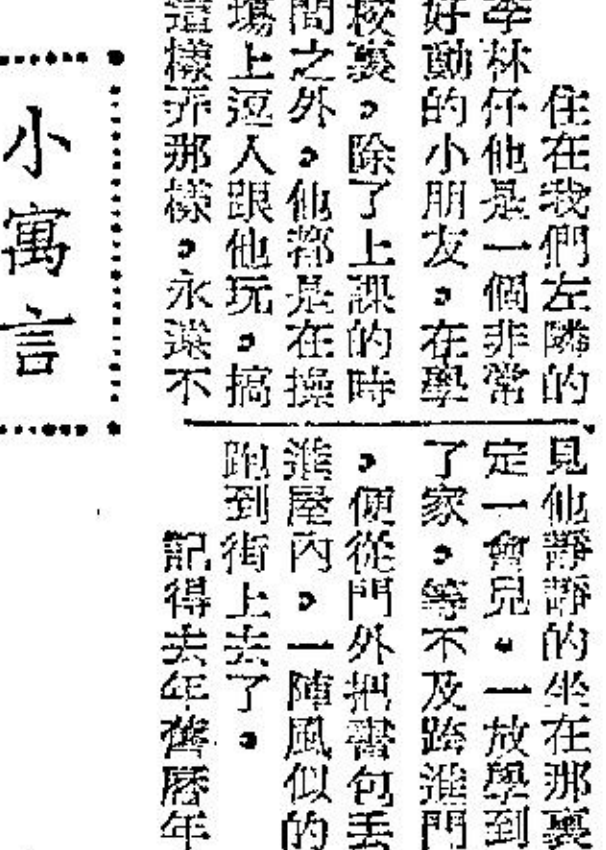 住在我們左隣的
李林仔他是一個非常
好動的小朋友，在學
校裏。除了上課的時
間之外，他都是在操
場上逗人跟他玩，搞
這樣弄那樣，永遠不
見他靜靜的坐在那裏
定一會兒。一放學到
了家，等不及跨進門
，便從門外把書包丟
進屋內，一陣風似的
跑到街上去了。
記得去年舊曆年
小寓言